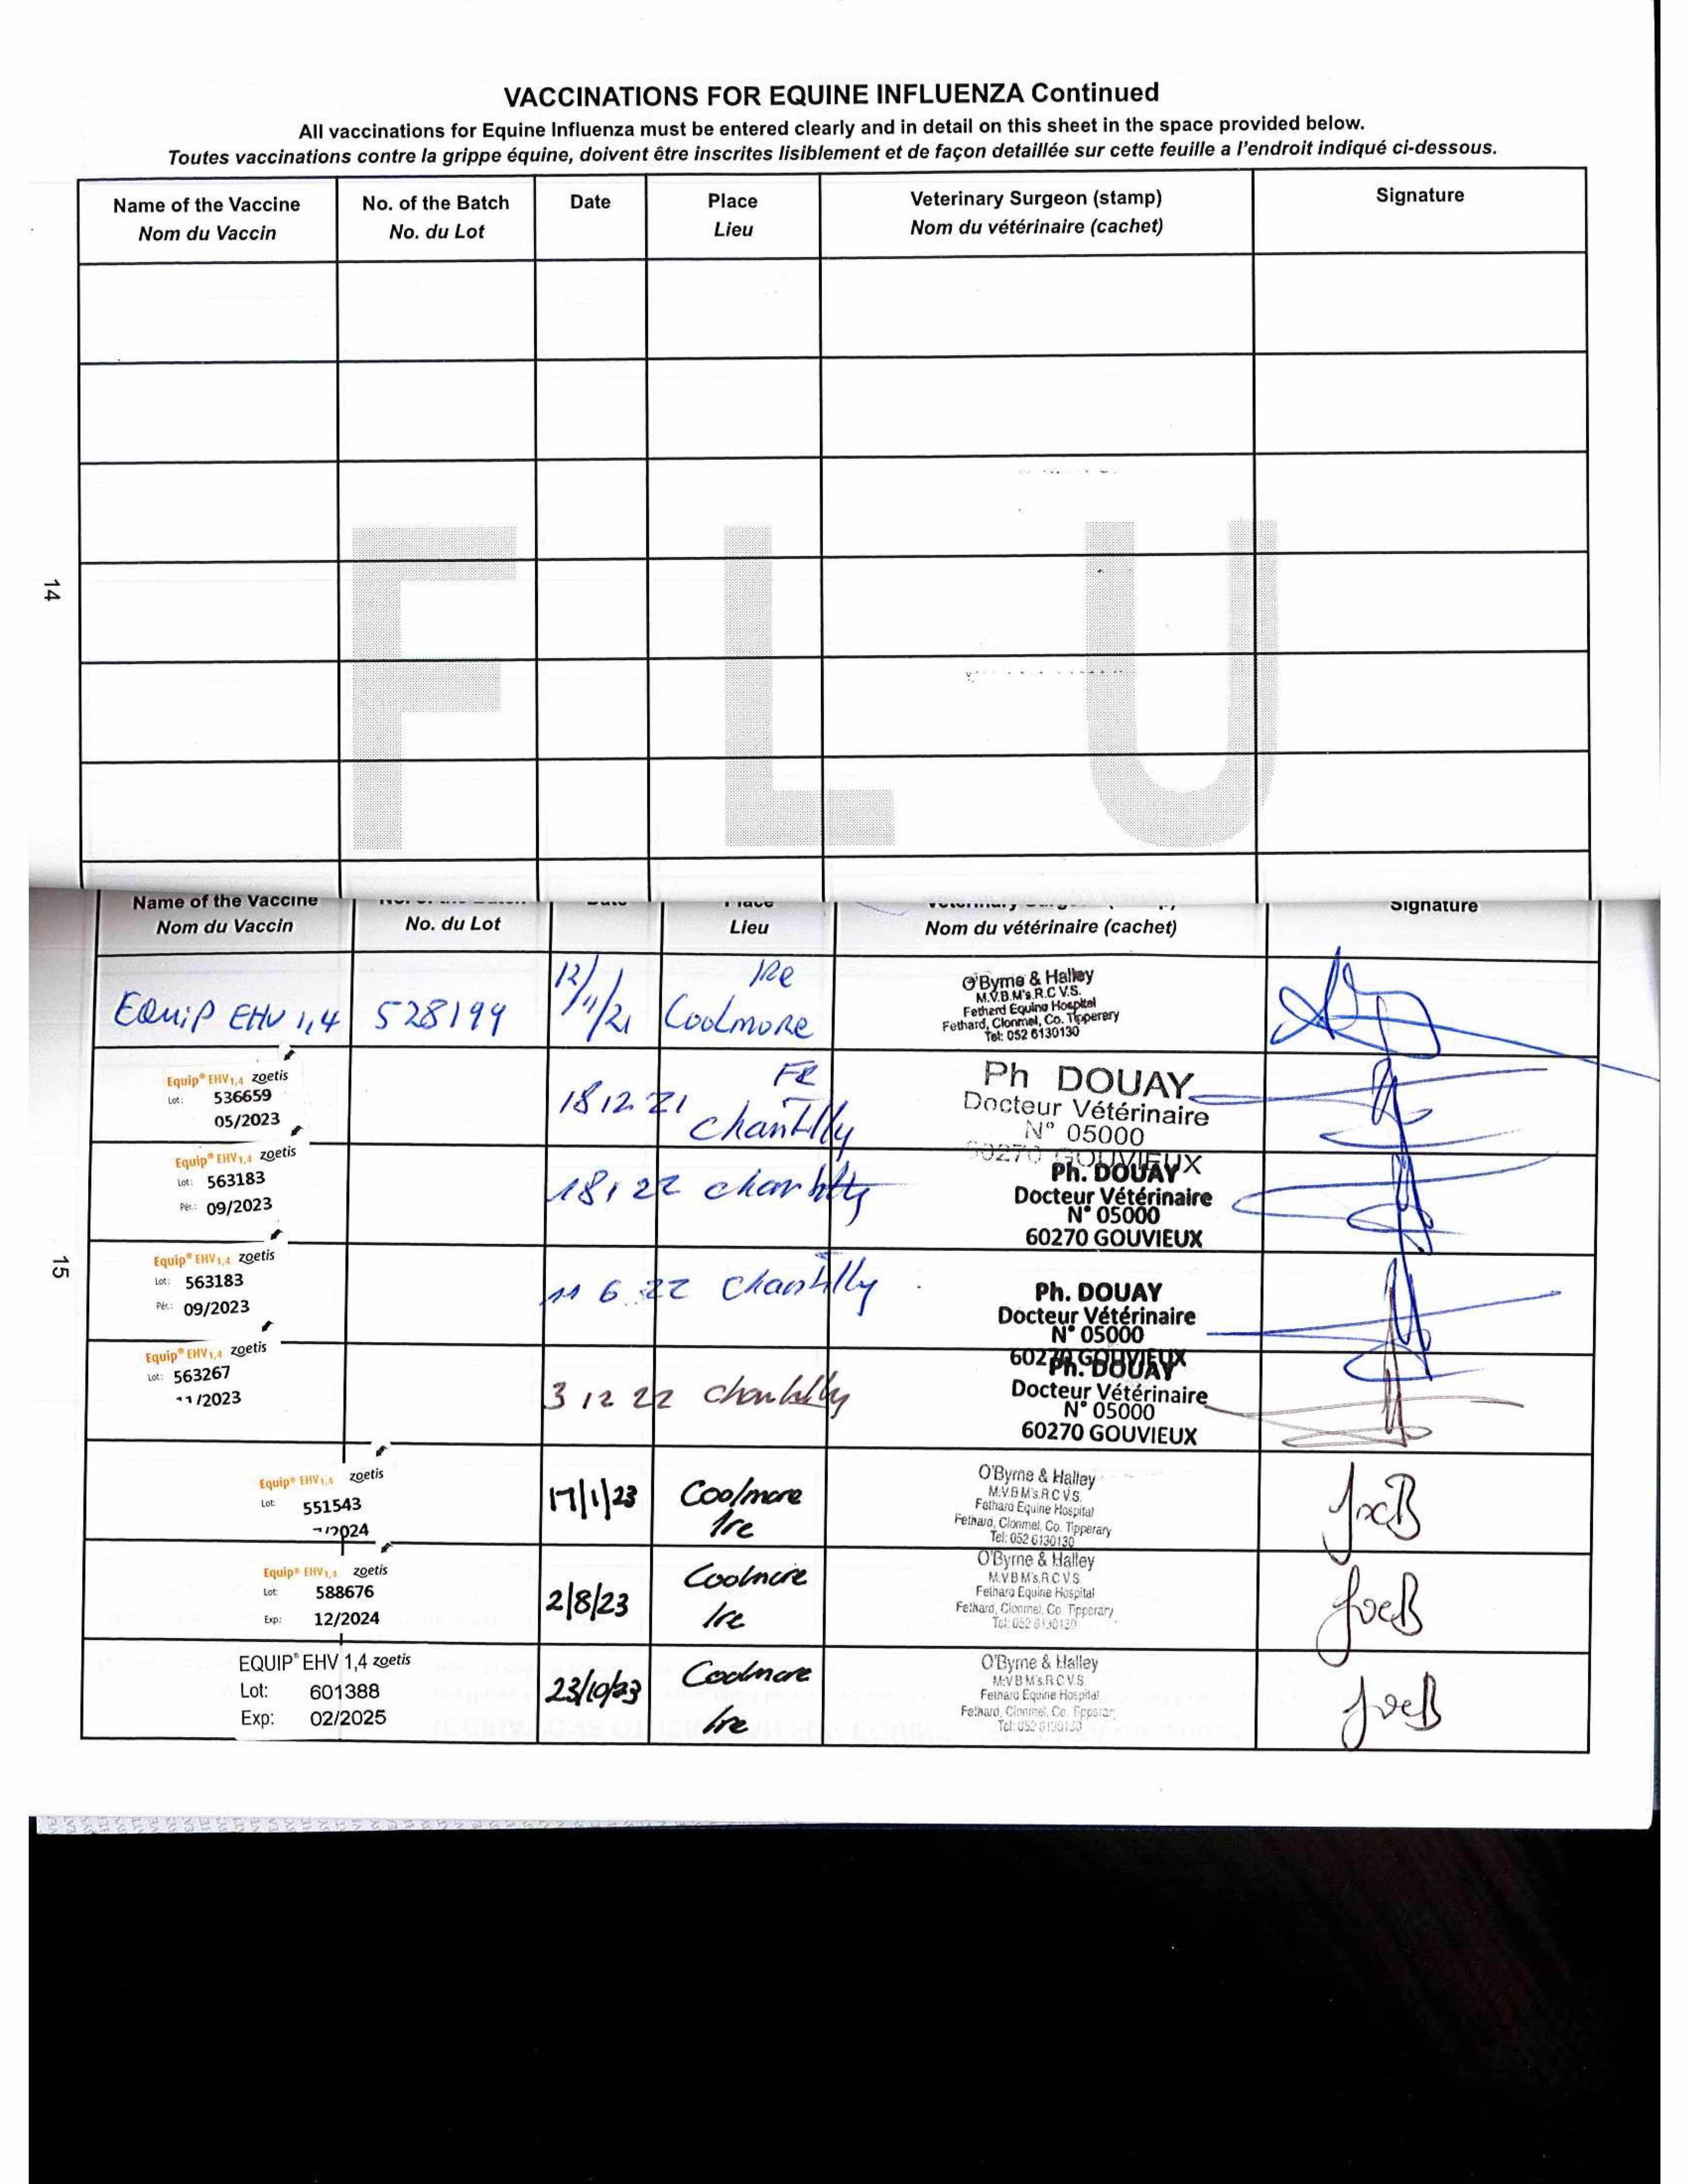 VACCINATIONS FOR EQUINE INFLUENZA Continued
All vaccinations for Equine Influenza must be entered clearly and in detail on this sheet in the space provided below.
Toutes vaccinations contre la grippe équine, doivent être inscrites lisiblement et de façon detaillée sur cette feuille a l'endroit indiqué ci-dessous.
Name of the Vaccine No. of the Batch Date Place Veterinary Surgeon (stamp) Signature
Nom du Vaccin No. du Lot Lieu Nom du vétérinaire (cachet)
FLU
14
Name of the Vaccine Place Signature
Nom du Vaccin No. du Lot Lieu Nom du vétérinaire (cachet)
EQuiP EHV 1,4 528199 12/11/21 IRe Coolmore
O'Byrne & Halley
M.V.B.M's.R.C.V.S.
Fethard Equine Hospital
Fethard, Clonmel, Co. Tipperery
Tel: 052 6130130
Equip® EHV1,4 zoetis
Lot: 536659
05/2023
18 12 21 FR Chantilly
Ph DOUAY
Docteur Vétérinaire
N° 05000
60270 GOUVIEUX
Equip® EHV1,4 zoetis
Lot: 563183
Pér.: 09/2023
18 1 22 chantilly
Ph. DOUAY
Docteur Vétérinaire
N° 05000
60270 GOUVIEUX
15
Equip® EHV1,4 zoetis
Lot: 563183
Pér.: 09/2023
11 6 22 Chantilly
Ph. DOUAY
Docteur Vétérinaire
N° 05000
60270 GOUVIEUX
Equip® EHV1,4 zoetis
Lot: 563267
11/2023
3 12 22 chantilly
Ph. DOUAY
Docteur Vétérinaire
N° 05000
60270 GOUVIEUX
Equip® EHV1,4 zoetis
Lot: 551543
/2024
17/1/23 Coolmore Ire
O'Byrne & Halley
M.V.B.M's.R.C.V.S.
Fethard Equine Hospital
Fethard, Clonmel, Co. Tipperary
Tel: 052 6130130
Equip® EHV1,4 zoetis
Lot: 588676
Exp: 12/2024
2/8/23 Coolmore Ire
O'Byrne & Halley
M.V.B.M's.R.C.V.S.
Fethard Equine Hospital
Fethard, Clonmel, Co. Tipperary
Tel: 052 6130130
EQUIP® EHV 1,4 zoetis
Lot: 601388
Exp: 02/2025
23/10/23 Coolmore Ire
O'Byrne & Halley
M.V.B.M's.R.C.V.S.
Fethard Equine Hospital
Fethard, Clonmel, Co. Tipperary
Tel: 052 6130130